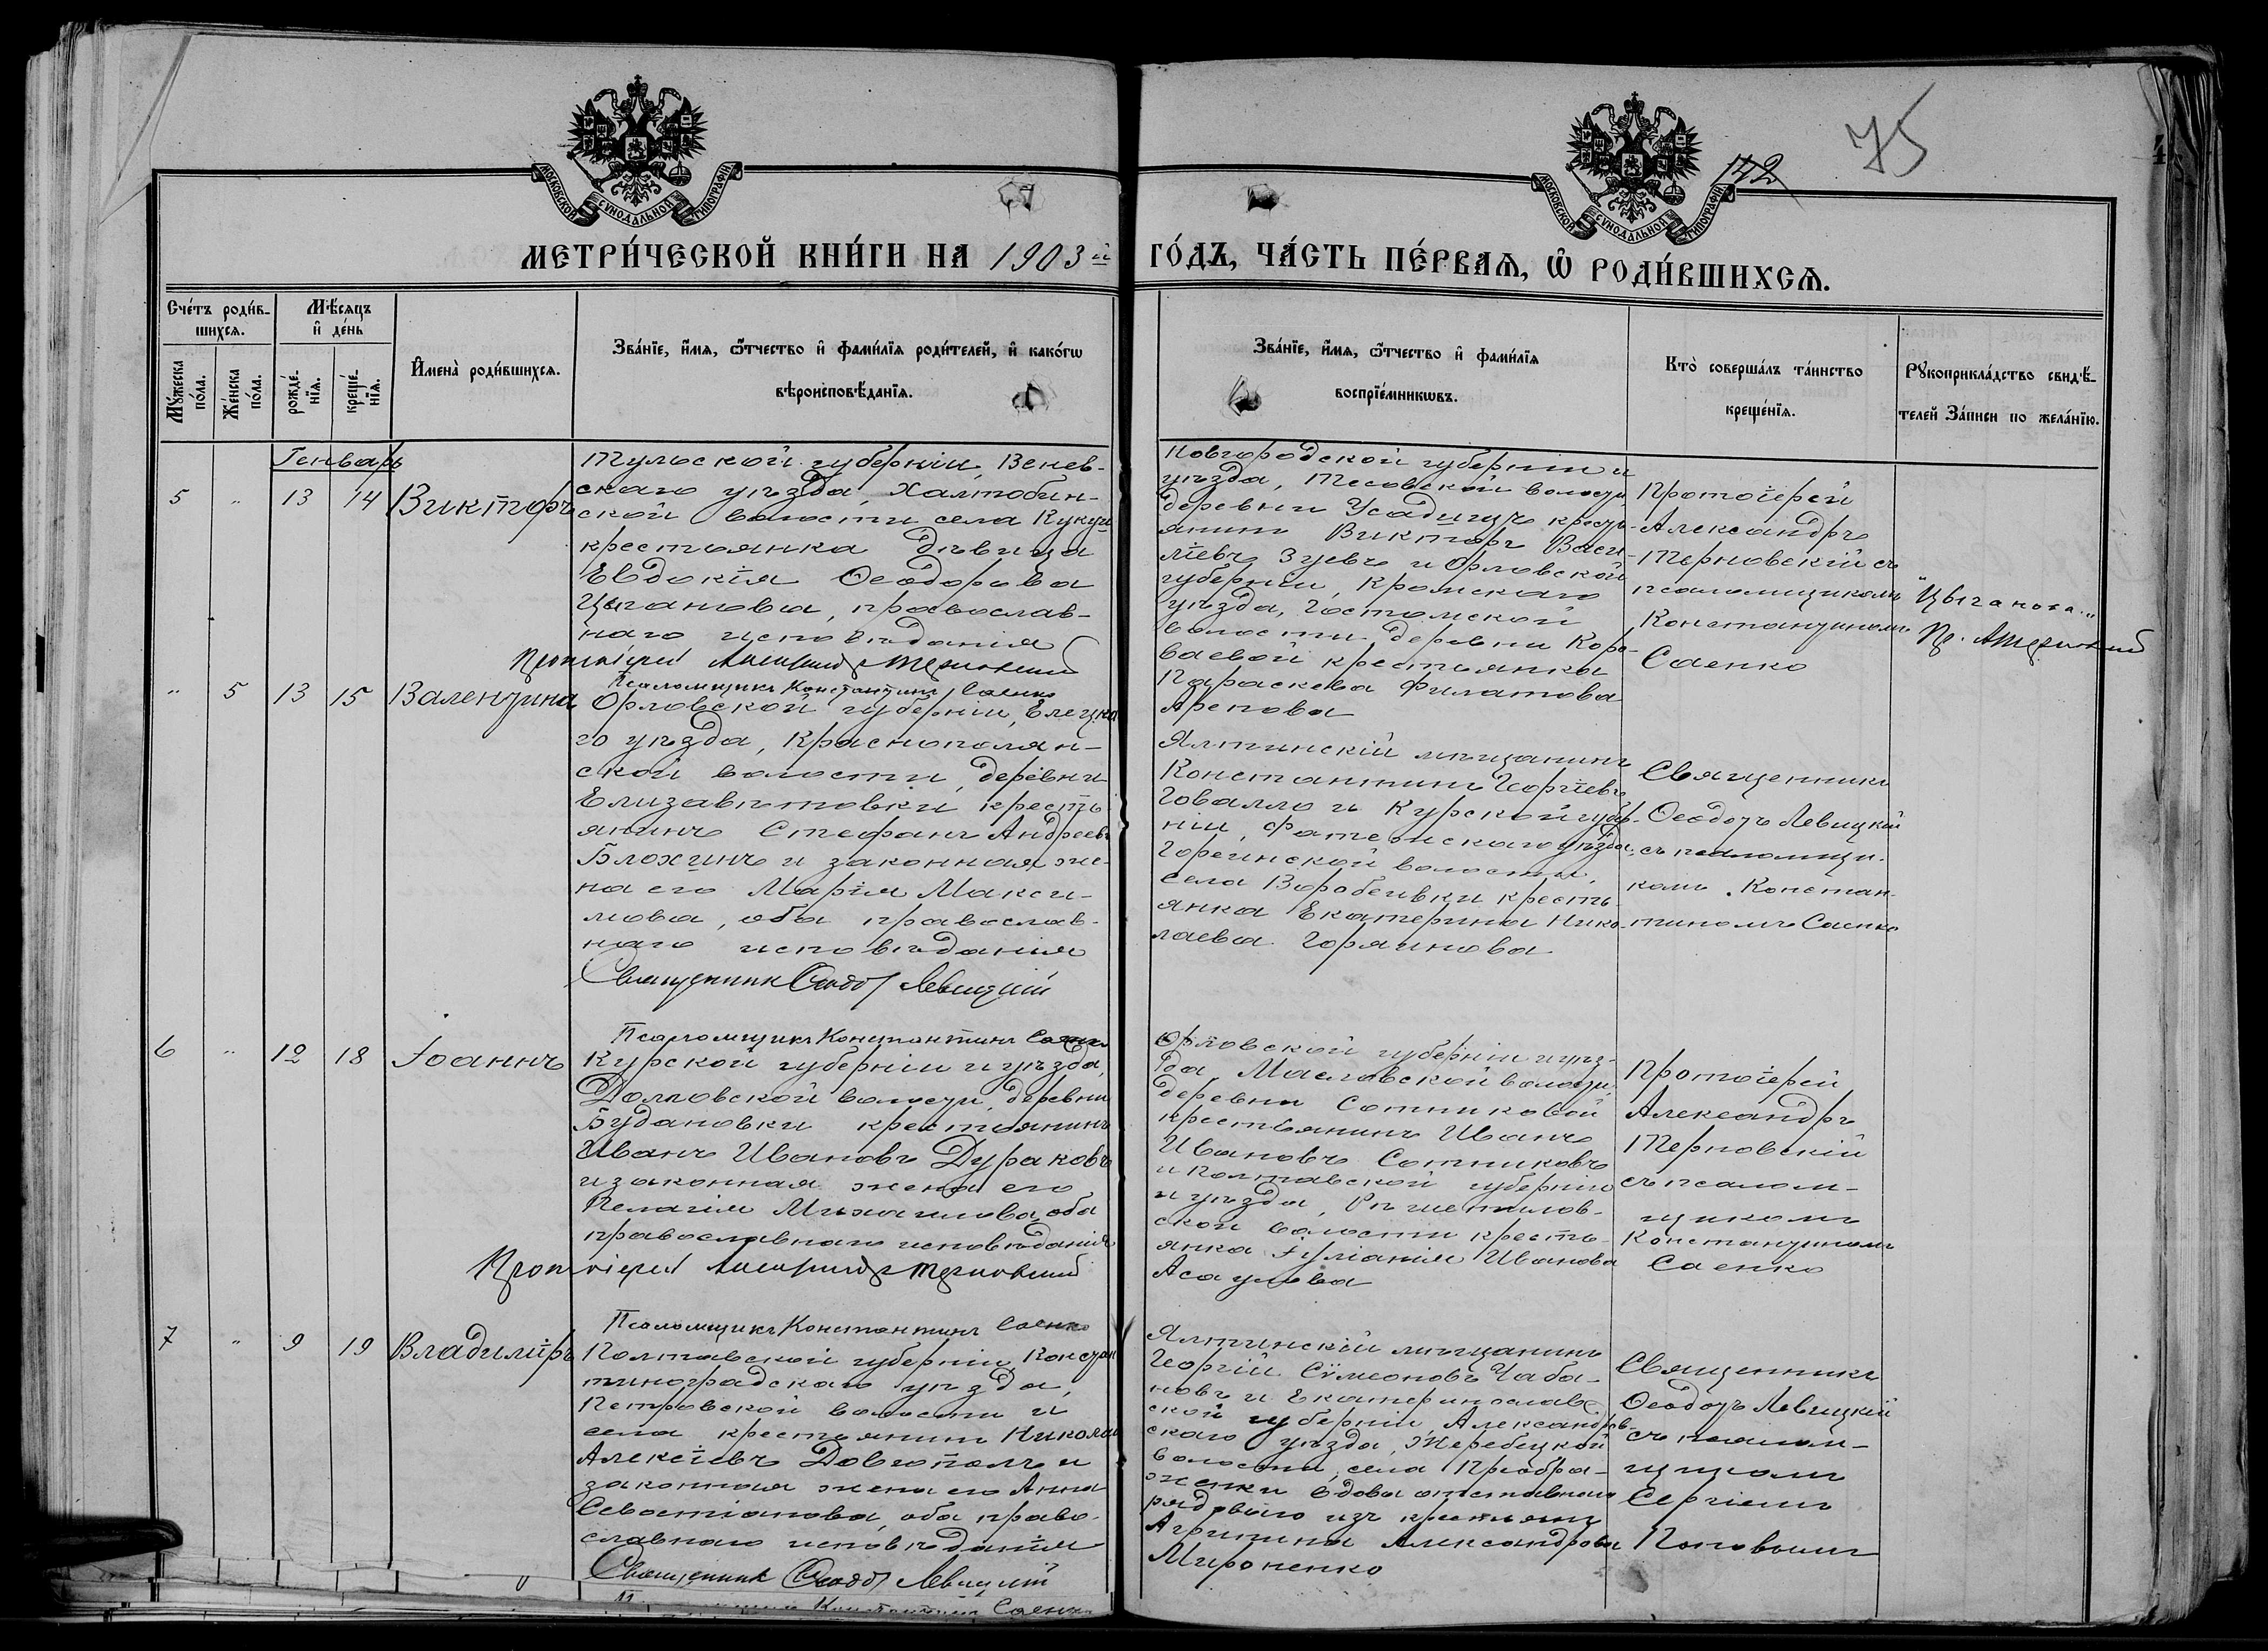 75
142
МОСКОВСКОЙ СУНОДАЛЬНОЙ ТИПОГРАФІИ
МОСКОВСКОЙ СУНОДАЛЬНОЙ ТИПОГРАФІИ
МЕТРИ́ЧЕСКОЙ КНИ́ГИ НА 1903й
ГО́ДЪ, ЧА́СТЬ ПЕ́РВАѦ, Ѡ҆ РОДИ́ВШИХСѦ.
Сче́тъ роди́в-
шихсѧ.
Мѣ́сѧцъ
и҆ де́нь
Мꙋ́жеска
по́ла.
Же́нска
по́ла.
рожде́-
нїѧ.
креще́-
нїѧ.
И҆мена̀ роди́вшихсѧ.
Зва́нїе, и҆́мѧ, ѻ҆́тчество и҆ фами́лїѧ роди́телей, и҆ како́гѡ
вѣроисповѣ́данїѧ.
Зва́нїе, и҆́мѧ, ѻ҆́тчество и҆ фами́лїѧ
воспрїе́мникѡвъ.
Кто̀ соверша́лъ та́инство
креще́нїѧ.
Рꙋкоприкла́дство свидѣ́-
телей За́писи по жела́нїю.
Генварь
5 " 13 14 Викторъ
Тульской губерніи, Венев-
скаго уѣзда, Халтобин-
ской волости села Кукуи
крестьянка дѣвица
Евдокія Ѳеодорова
Цыганова, православ-
наго исповѣданія
Протоіерей Александръ Терновскій
Псаломщикъ Константинъ Саенко
Новгородской губерніи и
уѣзда, Тесовской волости,
деревни Усадищъ кресть-
янинъ Викторъ Васи-
ліевъ Зуевъ и Орловской
губерніи, Кромскаго
уѣзда, Гостомской
волости деревни Коро-
ваевой крестьянка
Параскева Филатова
Арепова
Протоіерей
Александръ
Терновскій съ
псаломщикомъ
Константиномъ
Саенко
"Цыганова"
Пр. А Терновскій
" 5 13 15 Валентина
Орловской губерніи, Елецка
го уѣзда, Краснополян-
ской волости, деревни
Елизаветовки кресть
янинъ Стефанъ Андреевъ
Блохинъ и законная же-
на его Марія Макси-
мова, оба православ-
наго исповѣданія
Священникъ Ѳеодоръ Левицкій
Псаломщикъ Константинъ Саенко
Ялтинскій мѣщанинъ
Константинъ Георгіевъ
Говалло и Курской губер-
ніи, Фатежскаго уѣзда,
села Воробьевки кресть-
янка Екатерина Нико-
лаева Горяинова
Священникъ
Ѳеодоръ Левицкій
съ псаломщи-
комъ Констан-
тиномъ Саенко
6 " 12 18 Іоаннъ
Курской губерніи и уѣзда,
волости, деревни
Будановки крестьянинъ
Иванъ Ивановъ Дураковъ
и законная жена его
Пелагія Михаилова, оба
православнаго исповѣданія
Протоіерей Александръ Терновскій
Псаломщикъ Константинъ Саенко
Орловской губерніи и уѣз-
да, Масловской волости,
деревни Сотниковой
крестьянинъ Иванъ
Ивановъ Сотниковъ
и Полтавской губерніи
и уѣзда, Рѣшетилов-
ской волости кресть-
янка Іуліанія Иванова
Асаулова
Протоіерей
Александръ
Терновскій
съ псалом-
щикомъ
Константиномъ
Саенко
7 " 9 19 Владиміръ
Полтавской губерніи, Констан
тиноградскаго уѣзда,
Петровской волости и
села крестьянинъ Николай
Алексіевъ Довгополъ и
законная жена его Анна
Севастіанова, оба право-
славнаго исповѣданія
Священникъ Ѳеодоръ Левицкій
Константинъ Саенко
Ялтинскій мѣщанинъ
Георгій Сѵмеоновъ Чаба-
новъ и Екатеринослав-
ской губерніи Александров-
скаго уѣзда, Жеребецкой
волости, села Преобра-
женки вдова отставнаго
рядового изъ крестьянъ
Агрипина Александрова
Мироненко
Священникъ
Ѳеодоръ Левицкій
съ псалом-
щикомъ
Сергіемъ
Поповымъ